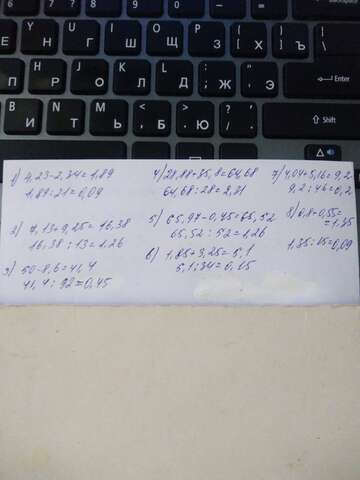 Backspace
6 7 8 9 0 - = Backspace
Е Н Г Ш Щ З Х Ъ
Y U I O P [ ] \
П Р О Л Д Ж Э
G H J K L ; '
И Т Ь Б Ю . Shift
1) 4,23-2,34=1,89
1,89:21=0,09
2) 7,13+9,25=16,38
16,38:13=1,26
3) 50-8,6=41,4
41,4:92=0,45
4) 28,88+35,8=64,68
64,68:28=2,31
5) 65,97-0,45=65,52
65,52:52=1,26
6) 1,85+3,25=5,1
5,1:34=0,15
7) 4,04+5,16=9,2
9,2:46=0,2
8) 0,8+0,55=
=1,35
1,35:15=0,09